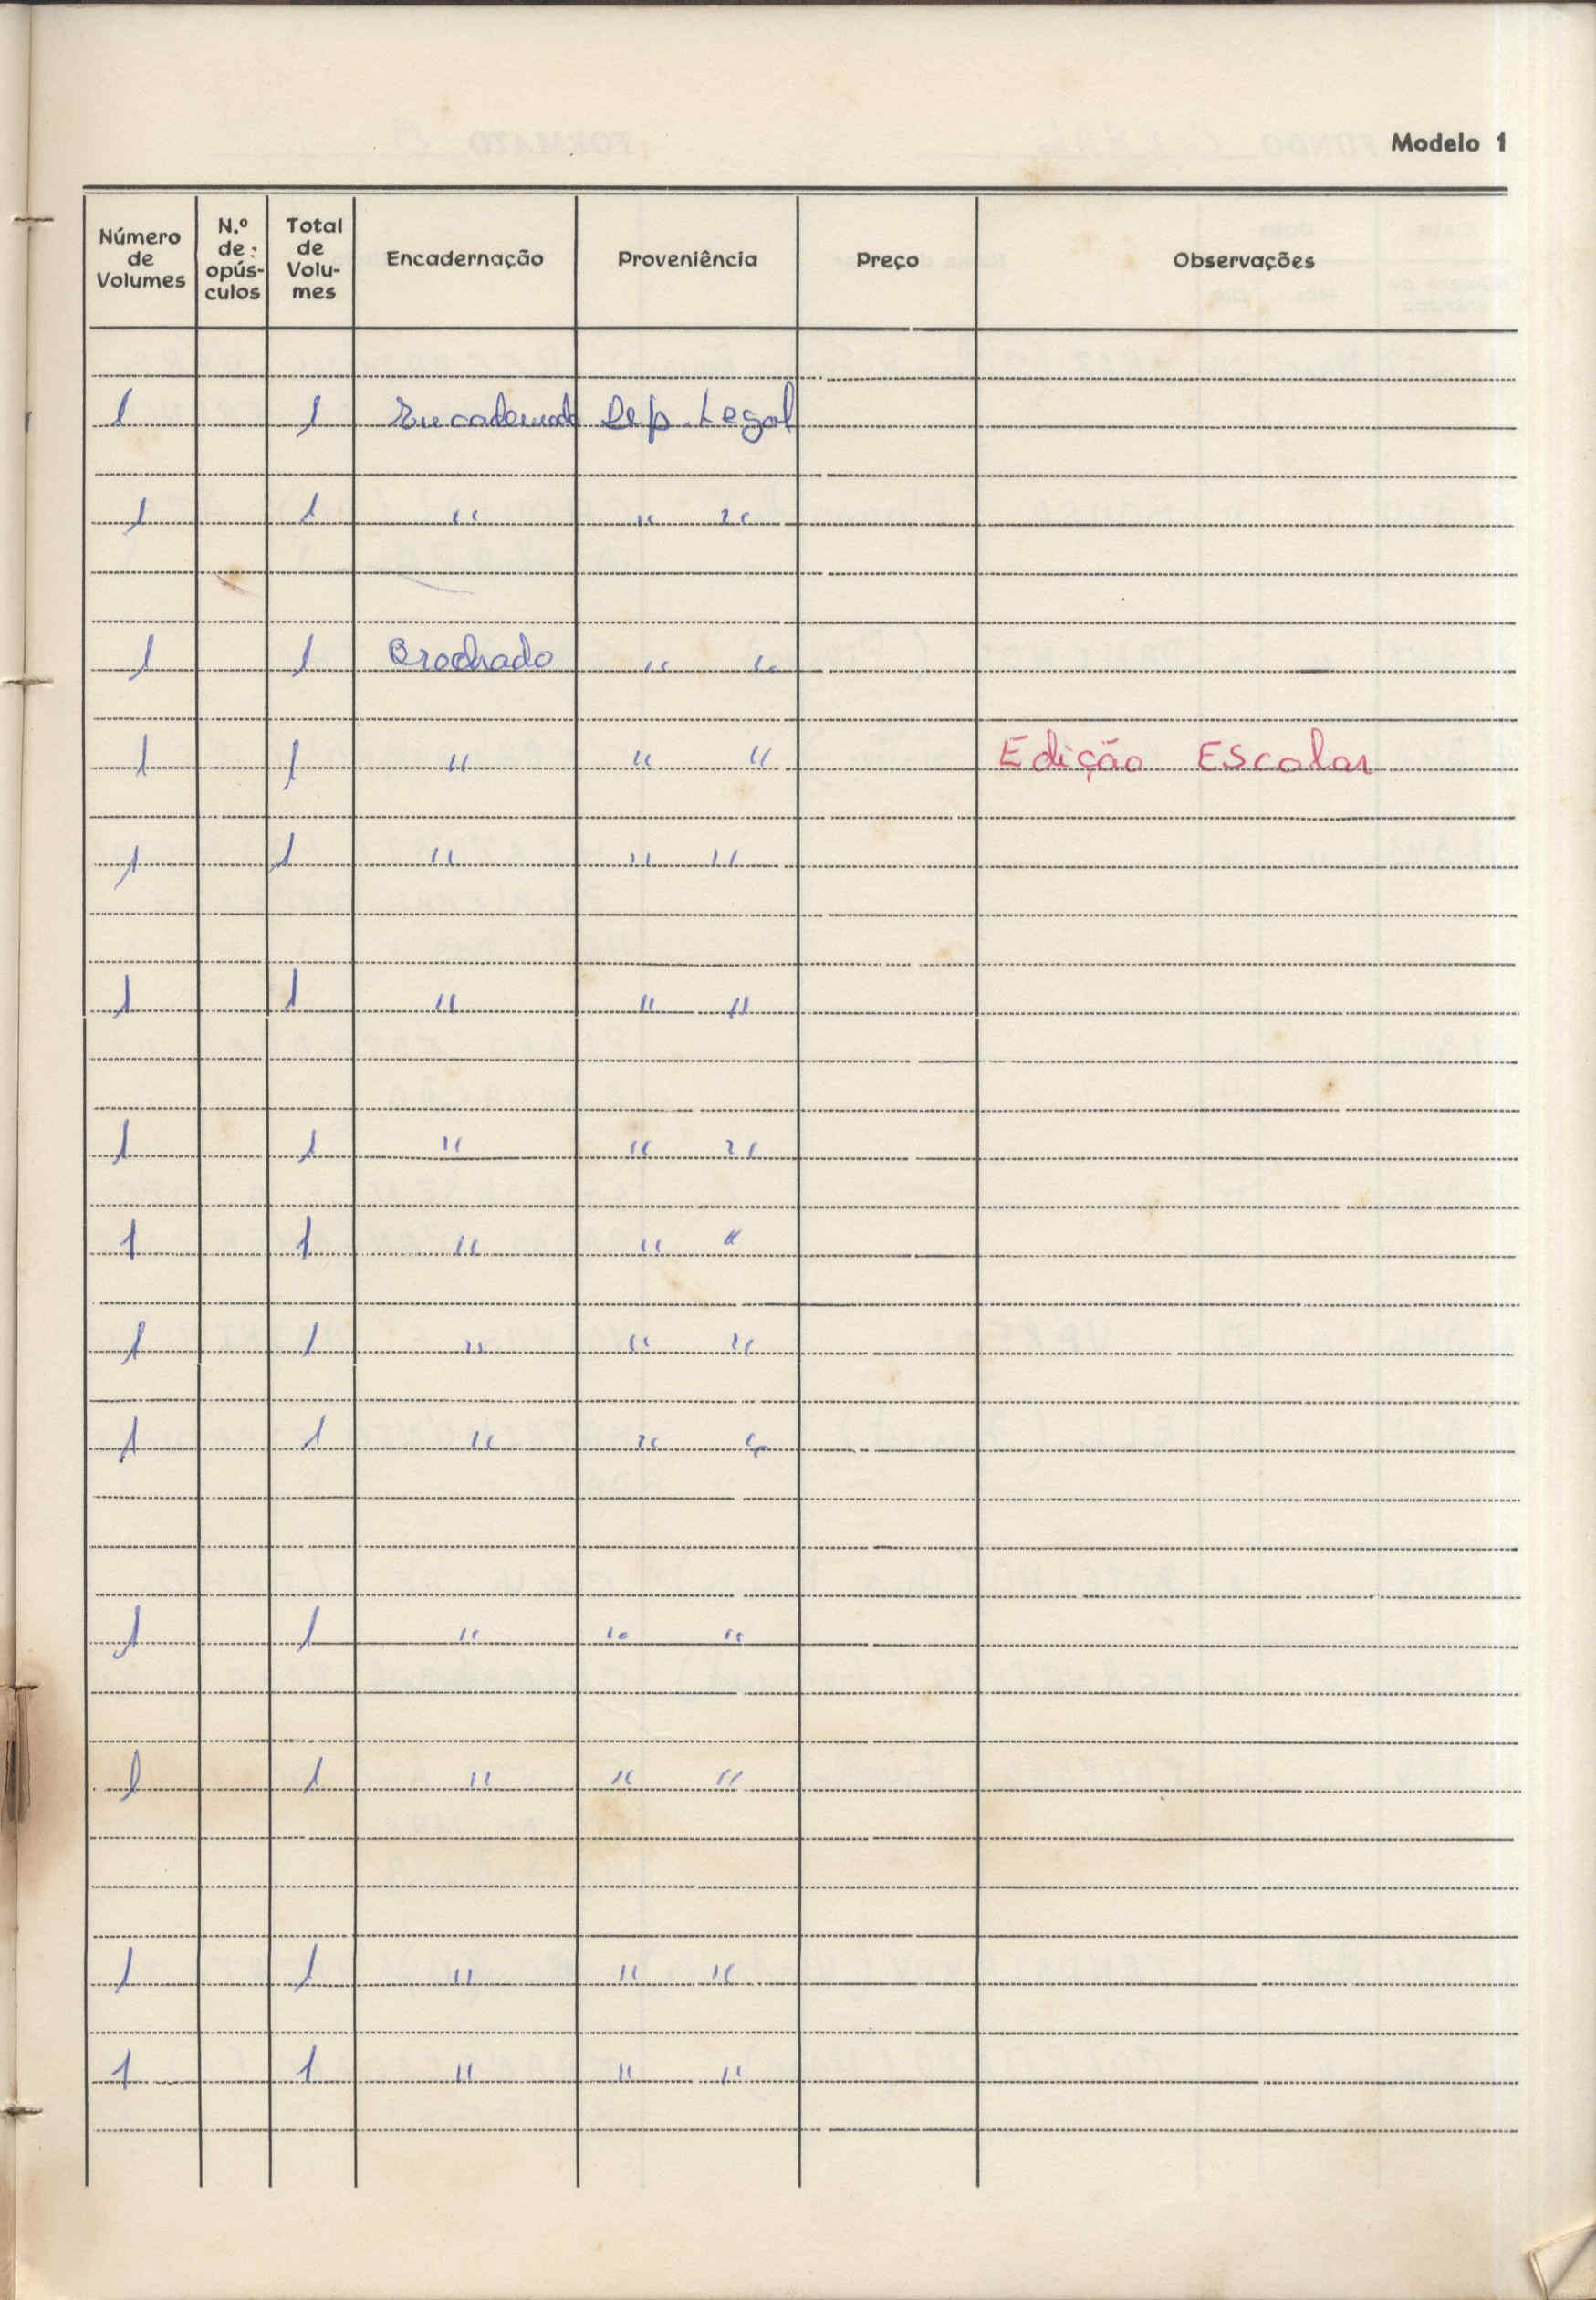 Modelo 1
Número de Volumes | N.º de opús- culos | Total de Volu- mes | Encadernação | Proveniência | Preço | Observações
1 | | 1 | Encadernado | Dep. Legal
1 | | 1 | " | " "
1 | | 1 | Brochado | " "
1 | | 1 | " | " " | | Edição Escolar
1 | | 1 | " | " "
1 | | 1 | " | " "
1 | | 1 | " | " "
1 | | 1 | " | " "
1 | | 1 | " | " "
1 | | 1 | " | " "
1 | | 1 | " | " "
1 | | 1 | " | " "
1 | | 1 | " | " "
1 | | 1 | " | " "